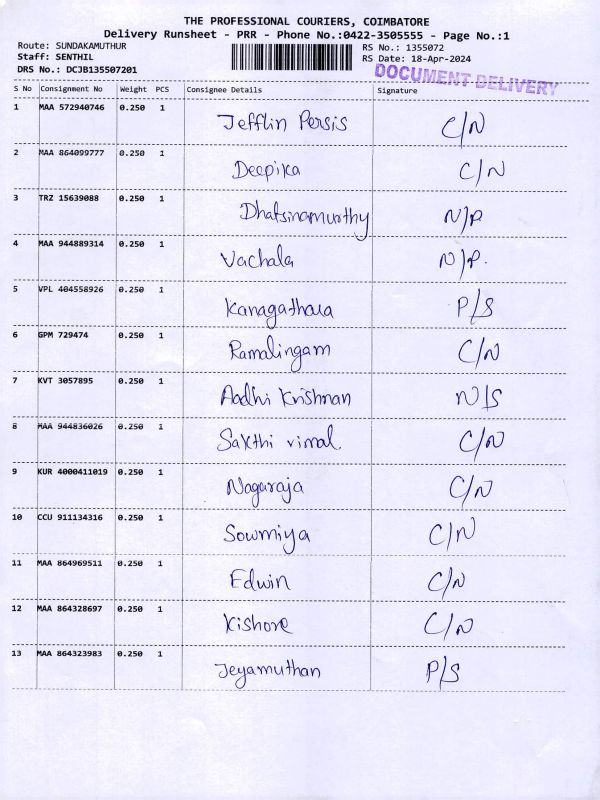 THE PROFESSIONAL COURIERS, COIMBATORE
Delivery Runsheet - PRR - Phone No.:0422-3505555 - Page No.:1
Route: SUNDAKAMUTHUR RS No.: 1355072
Staff: SENTHIL RS Date: 18-Apr-2024
DRS No.: DCJB135507201 DOCUMENT DELIVERY
S No Consignment No Weight PCS Consignee Details Signature
1 MAA 572940746 0.250 1 Jefflin Persis C/N
2 MAA 864099777 0.250 1 Deepika C/N
3 TRZ 15639088 0.250 1 Dhatsinamurthy N/P
4 MAA 944889314 0.250 1 Vachala N/P.
5 VPL 404558926 0.250 1 Kanagathara P/S
6 GPM 729474 0.250 1 Ramalingam C/N
7 KVT 3057895 0.250 1 Aadhi Krishnan N/S
8 MAA 944836026 0.250 1 Sakthi vimal C/N
9 KUR 4000411019 0.250 1 Nagaraja C/N
10 CCU 911134316 0.250 1 Sowmiya C/N
11 MAA 864969511 0.250 1 Edwin C/N
12 MAA 864328697 0.250 1 Kishore C/N
13 MAA 864323983 0.250 1 Jeyamuthan P/S